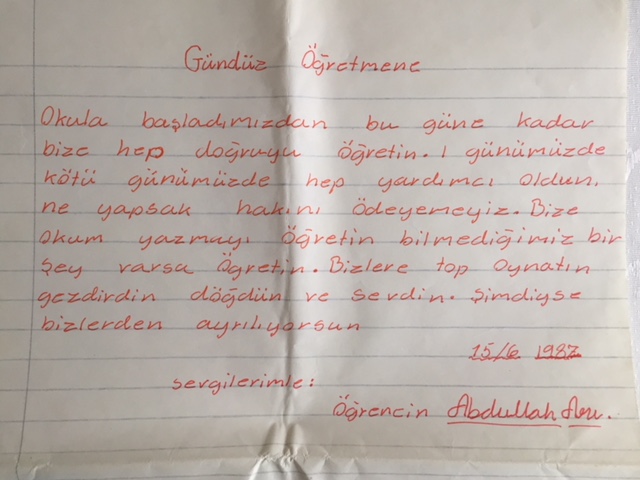 Gündüz Öğretmene
Okula başladımızdan bu güne kadar
bize hep doğruyu öğretin. I günümüzde
kötü günümüzde hep yardımcı oldun,
ne yapsak hakını ödeyemeyiz. Bize
okum yazmayı öğretin bilmediğimiz bir
şey varsa öğretin. Bizlere top oynatın
gezdirdin döğdün ve sevdin. Şimdiyse
bizlerden ayrılıyorsun
15/6 1987
sevgilerimle:
Öğrencin Abdullah